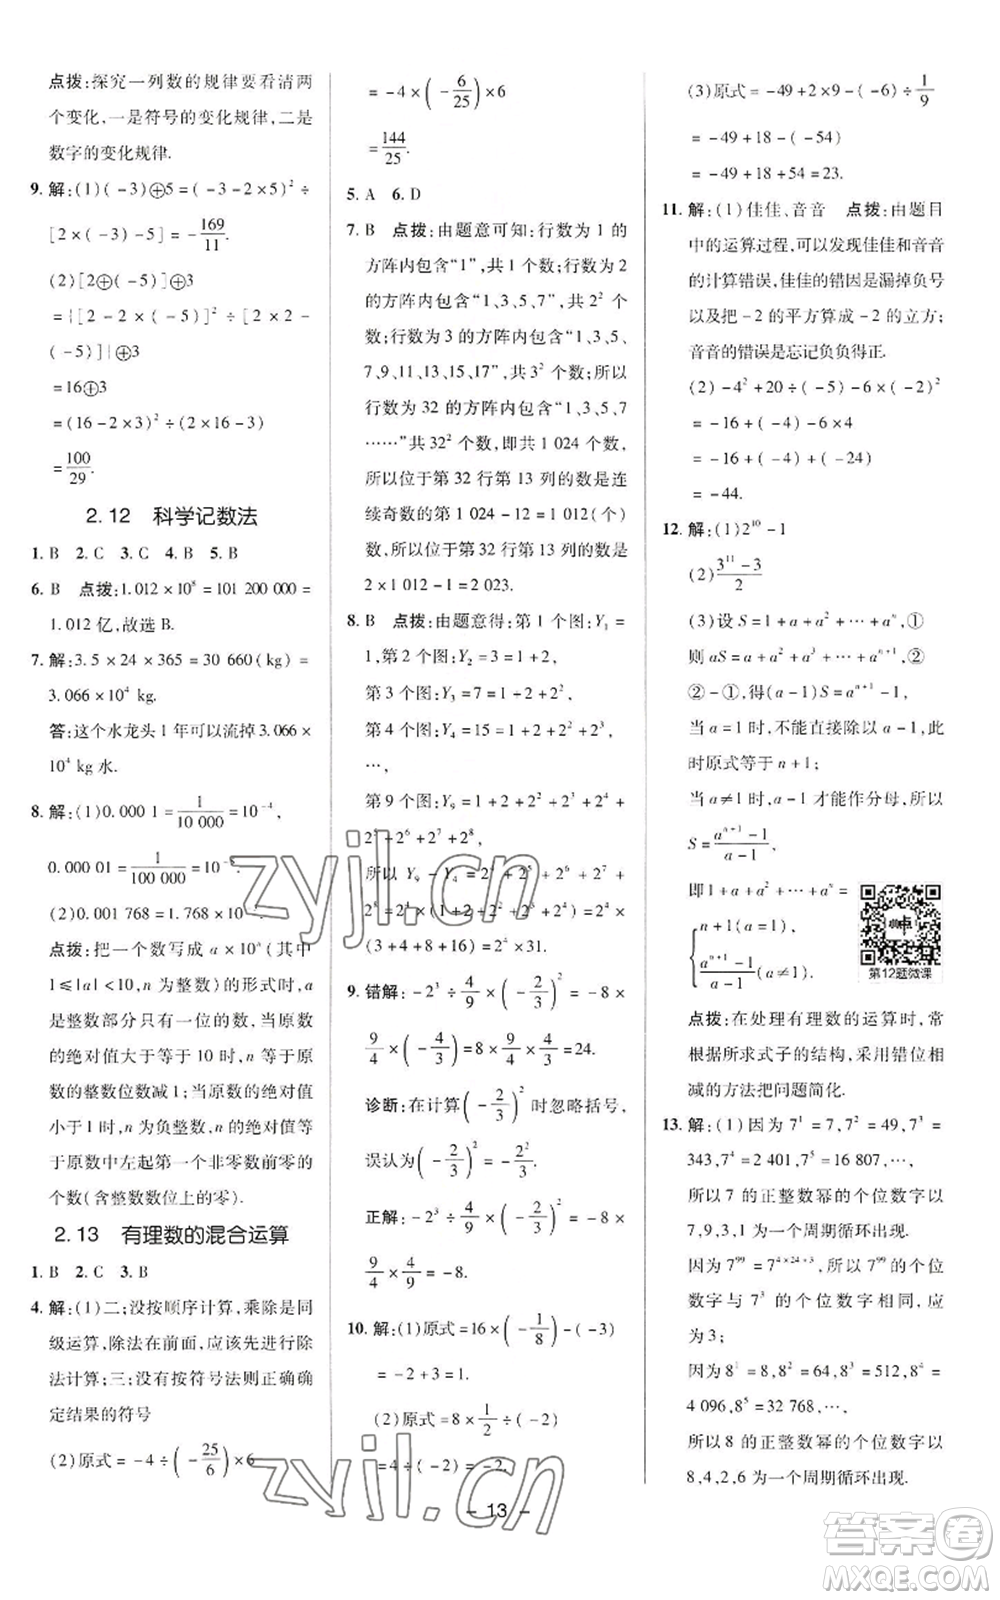 点拨:探究一列数的规律要看清两
个变化,一是符号的变化规律,二是
数字的变化规律.
9. 解:(1)(-3)⊕5=(-3-2×5)²÷
[2×(-3)-5]=-169/11.
(2)[2⊕(-5)]⊕3
={[2-2×(-5)]²÷[2×2-
(-5)]}⊕3
=16⊕3
=(16-2×3)²÷(2×16-3)
=100/29.
2.12 科学记数法
1. B 2. C 3. C 4. B 5. B
6. B 点拨:1.012×10⁸=101 200 000=
1.012亿,故选B.
7. 解:3.5×24×365=30 660(kg)=
3.066×10⁴ kg.
答:这个水龙头1年可以流掉3.066×
10⁴ kg水.
8. 解:(1)0.000 1=1/10 000=10⁻⁴,
0.000 01=1/100 000=10⁻⁵.
(2)0.001 768=1.768×10⁻³.
点拨:把一个数写成a×10ⁿ(其中
1≤|a|<10,n为整数)的形式时,a
是整数部分只有一位的数,当原数
的绝对值大于等于10时,n等于原
数的整数位数减1;当原数的绝对值
小于1时,n为负整数,n的绝对值等
于原数中左起第一个非零数前零的
个数(含整数数位上的零).
2.13 有理数的混合运算
1. B 2. C 3. B
4. 解:(1)二;没按顺序计算,乘除是同
级运算,除法在前面,应该先进行除
法计算;三;没有按符号法则正确确
定结果的符号
(2)原式=-4÷(-25/6)×6
=-4×(-6/25)×6
=144/25.
5. A 6. D
7. B 点拨:由题意可知:行数为1的
方阵内包含“1”,共1个数;行数为2
的方阵内包含“1、3、5、7”,共2²个
数;行数为3的方阵内包含“1、3、5、
7、9、11、13、15、17”,共3²个数;所以
行数为32的方阵内包含“1、3、5、7
……”共32²个数,即共1 024个数,
所以位于第32行第13列的数是连
续奇数的第1 024-12=1 012(个)
数,所以位于第32行第13列的数是
2×1 012-1=2 023.
8. B 点拨:由题意得:第1个图:Y₁=
1,第2个图:Y₂=3=1+2,
第3个图:Y₃=7=1+2+2²,
第4个图:Y₄=15=1+2+2²+2³,
…,
第9个图:Y₉=1+2+2²+2³+2⁴+
2⁵+2⁶+2⁷+2⁸,
所以Y₉-Y₄=2⁴+2⁵+2⁶+2⁷+
2⁸=2⁴×(1+2+2²+2³+2⁴)=2⁴×
(3+4+8+16)=2⁴×31.
9. 错解:-2³÷4/9×(-2/3)²=-8×
9/4×(-4/3)=8×9/4×4/3=24.
诊断:在计算(-2/3)²时忽略括号,
误认为(-2/3)²=-2²/3.
正解:-2³÷4/9×(-2/3)²=-8×
9/4×4/9=-8.
10. 解:(1)原式=16×(-1/8)-(-3)
=-2+3=1.
(2)原式=8×1/2÷(-2)
=4÷(-2)=-2.
(3)原式=-49+2×9-(-6)÷1/9
=-49+18-(-54)
=-49+18+54=23.
11. 解:(1)佳佳、音音 点拨:由题目
中的运算过程,可以发现佳佳和音音
的计算错误,佳佳的错因是漏掉负号
以及把-2的平方算成-2的立方;
音音的错误是忘记负负得正.
(2)-4²+20÷(-5)-6×(-2)²
=-16+(-4)-6×4
=-16+(-4)+(-24)
=-44.
12. 解:(1)2¹⁰-1
(2)(3¹¹-3)/2
(3)设S=1+a+a²+…+aⁿ,①
则aS=a+a²+…+aⁿ⁺¹,②
②-①,得(a-1)S=aⁿ⁺¹-1,
当a=1时,不能直接除以a-1,此
时原式等于n+1;
当a≠1时,a-1才能作分母,所以
S=(aⁿ⁺¹-1)/(a-1),
即1+a+a²+…+aⁿ=
{n+1(a=1),
(aⁿ⁺¹-1)/(a-1)(a≠1).
第12题微课
点拨:在处理有理数的运算时,常
根据所求式子的结构,采用错位相
减的方法把问题简化.
13. 解:(1)因为7¹=7,7²=49,7³=
343,7⁴=2 401,7⁵=16 807,…,
所以7的正整数幂的个位数字以
7,9,3,1为一个周期循环出现.
因为7⁹⁹=7⁴ˣ²⁴⁺³,所以7⁹⁹的个位
数字与7³的个位数字相同,应
为3;
因为8¹=8,8²=64,8³=512,8⁴=
4 096,8⁵=32 768,…,
所以8的正整数幂的个位数字以
8,4,2,6为一个周期循环出现.
- 13 -
zyjl.cn
zyjl.cn
答案卷
MXQE.COM